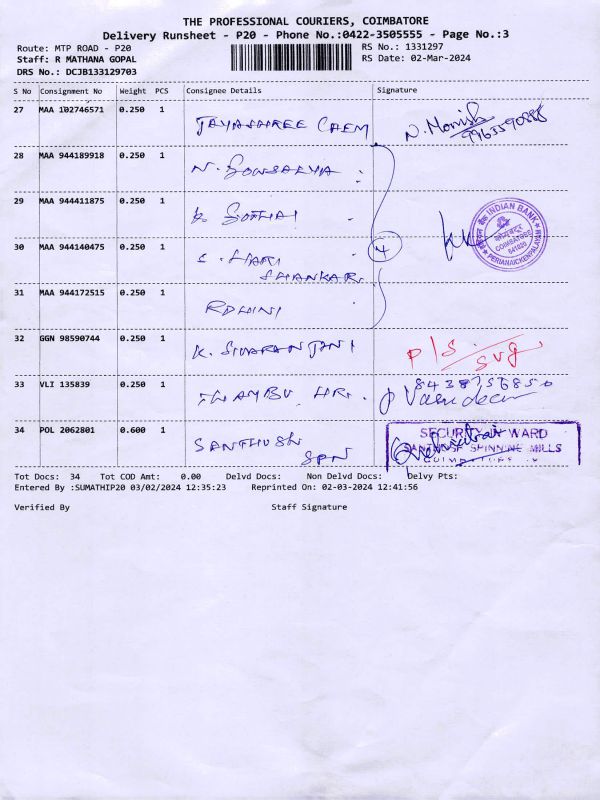 THE PROFESSIONAL COURIERS, COIMBATORE
Delivery Runsheet - P20 - Phone No.:0422-3505555 - Page No.:3
Route: MTP ROAD - P20 RS No.: 1331297
Staff: R MATHANA GOPAL RS Date: 02-Mar-2024
DRS No.: DCJB133129703
S No Consignment No Weight PCS Consignee Details Signature
27 MAA 102746571 0.250 1 JAYASHREE CHEM N. Monish
9963590888
28 MAA 944189918 0.250 1 N. GOWSALYA
29 MAA 944411875 0.250 1
INDIAN BANK
COIMBATORE
641020
PERIANAICKENPALAYAM
30 MAA 944140475 0.250 1 S. HARI
SHANKAR. 4
31 MAA 944172515 0.250 1 ROHINI
32 GGN 98590744 0.250 1 K. SIVARANJANI P/S.
SVG
33 VLI 135839 0.250 1 8438756850
34 POL 2062801 0.600 1 SANTHOSH
SPN
SECURITY IN WARD
SPINNING MILLS
Tot Docs: 34 Tot COD Amt: 0.00 Delvd Docs: Non Delvd Docs: Delvy Pts:
Entered By :SUMATHIP20 03/02/2024 12:35:23 Reprinted On: 02-03-2024 12:41:56
Verified By Staff Signature